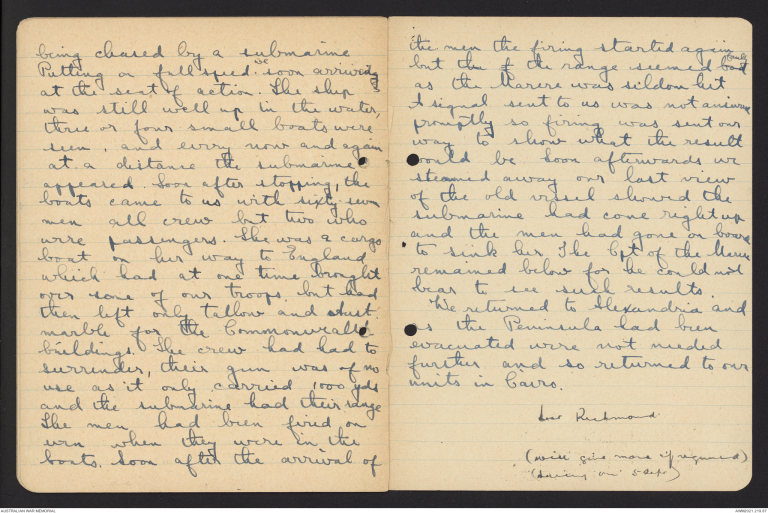 being chased by a submarine
Putting on full speed. we soon arriving
at the seat of action. The ship
was still well up in the water,
three or four small boats were
seen, and every now and again
at a distance the submarine
appeared. Soon after stopping, the
boats came to us with sixty seven
men all crew but two who
were passengers. She was a cargo
boat on her way to England
which had at one time brought
over some of our troops. but had
then left only tallow and Aust.
marble for the Commonwealth
buildings. The crew had had to
surrender, their gun was of no
use as it only carried 1000 yds
and the submarine had their range
The men had been fired on
even when they were in the
boats. Soon after the arrival of
the men the firing started again
but the of the range seemed bad
as the Marere was sildom hit
A signal sent to us was not answered
promptly so firing was sent our
way to show what the result
would be soon afterwards we
steamed away our last view
of the old vessel showed the
submarine had come right up
and the men had gone on board
to sink her. The Cpt of the Marere
remained below for he could not
bear to see such results.
We returned to Alexandria and
as the Peninsula had been
evacuated were not needed
further and so returned to our
units in Cairo.
Richmond
(will give more if required)
AUSTRALIAN WAR MEMORIAL
AWM2021.219.87